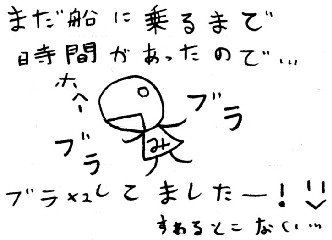 まだ船に乗るまで
時間があったので…
ホヘー
ブラ
ブラ
み
ブラ×2してましたー!
すわるとこない…